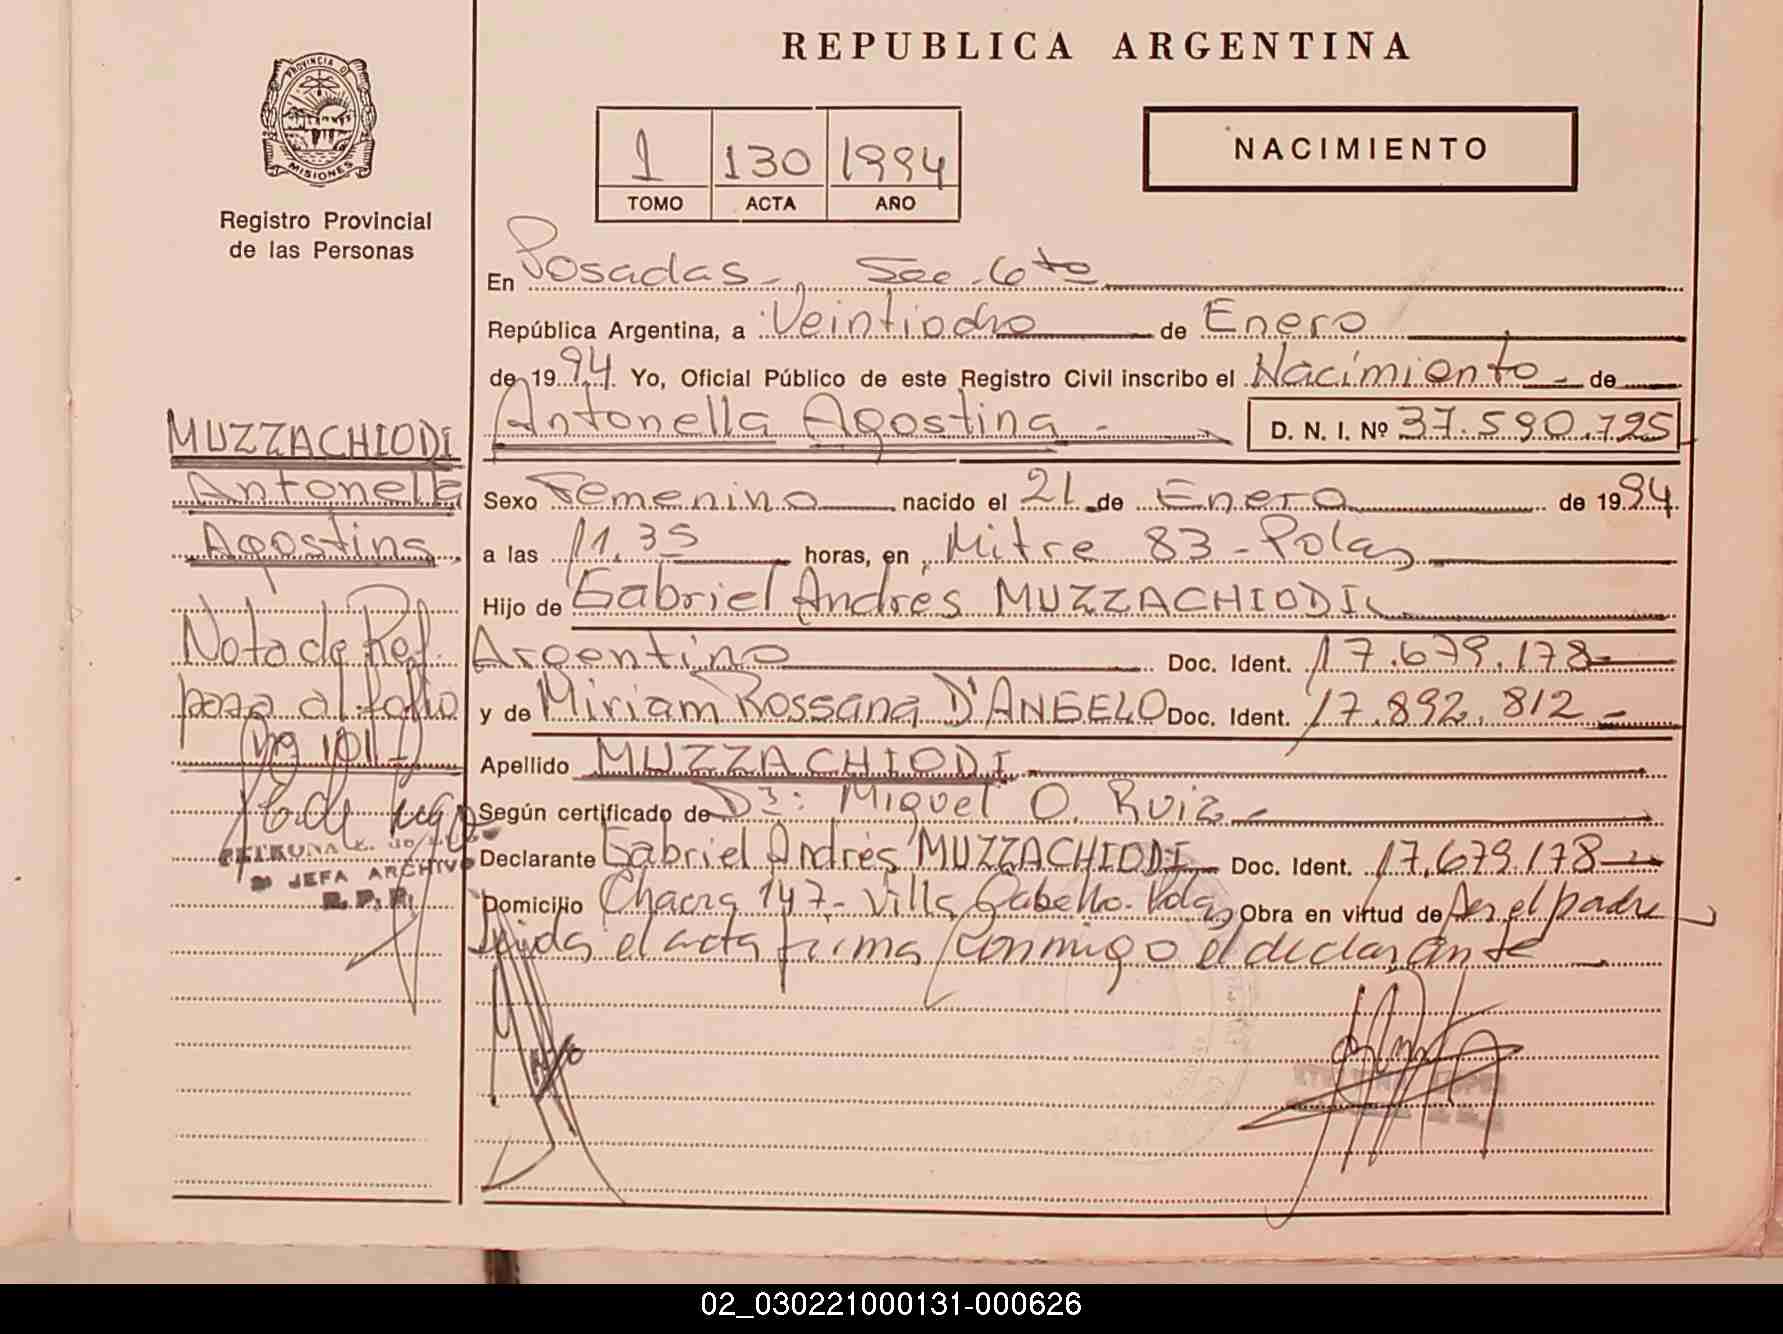 REPUBLICA ARGENTINA
PROVINCIA D
MISIONES
Registro Provincial
de las Personas
1 130 1994
TOMO ACTA AÑO
NACIMIENTO
En Posadas - Sec. 6ta
República Argentina, a Veintiocho de Enero
de 1994. Yo, Oficial Público de este Registro Civil inscribo el Nacimiento - de
Antonella Agostina - D. N. I. Nº 37.590.795
Sexo Femenino nacido el 21 de Enero de 1994
a las 11.35 horas, en Mitre 83 - Pdas
Hijo de Gabriel Andres MUZZACHIODI
Argentino Doc. Ident. 17.679.178
y de Miriam Rossana D'ANGELO Doc. Ident. 17.892.812 -
Apellido MUZZACHIODI
Según certificado de Dr: Miguel O. Ruiz -
Declarante Gabriel Andrés MUZZACHIODI Doc. Ident. 17.679.178
Domicilio Chacra 147 - Villa Cabello. Pdas Obra en virtud de ser el padre
Leida el acta firma conmigo el declarante
MUZZACHIODI
Antonella
Agostina
Nota de Ref.
pasa al folio
JEFA ARCHIVO
R. P. P.
02_030221000131-000626